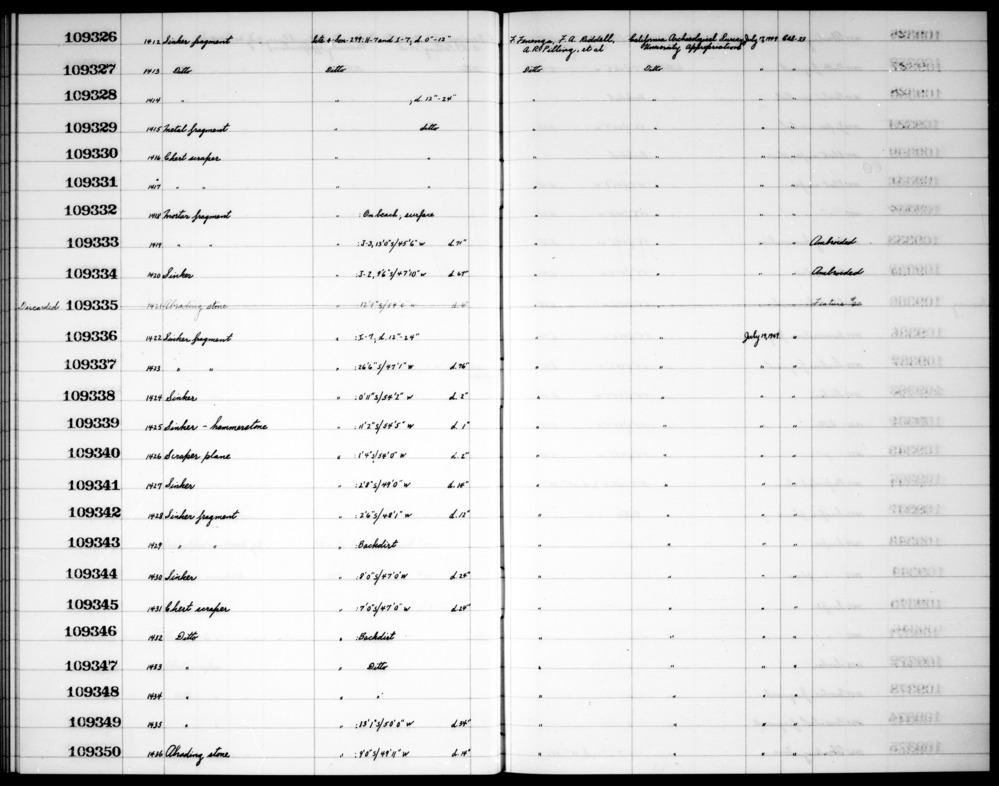 109326 1412 Sinker fragment Site 4-Son-299: H-7 and I-7, d. 0"-12" F. Fenenga, F. A. Riddell, California Archaeological Survey July 17, 1949
A. R. Pilling, et al University Appropriations
109327 1413 Ditto Ditto Ditto Ditto " "
109328 1414 " " , d. 12"-24" " " " "
109329 1415 Metal fragment " ditto " " " "
109330 1416 Chert scraper " " " " " "
109331 1417 " " " " " " " "
109332 1418 Mortar fragment " : On beach, surface " " " "
109333 1419 " " : I-3, 13'0"S/45'6"W d. 71" " " " " Ambroided
109334 1420 Sinker " : I-2, 9'6"S/47'10"W d. 65" " " " " Ambroided
Discarded 109335 1421 Abrading stone " " " " "
109336 1422 Sinker fragment " : I-7, d. 12"-24" " " July 19, 1949 "
109337 1423 " " " : 26'6"S/47'1"W d. 76" " " " "
109338 1424 Sinker " : 0'11"S/54'2"W d. 2" " " " "
109339 1425 Sinker - hammerstone " : 11'2"S/54'5"W d. 1" " " " "
109340 1426 Scraper plane " : 1'4"S/54'0"W d. 2" " " " "
109341 1427 Sinker " : 2'8"S/49'0"W d. 14" " " " "
109342 1428 Sinker fragment " : 2'6"S/48'1"W d. 12" " " " "
109343 1429 " " " : Backdirt " " " "
109344 1430 Sinker " : 8'0"S/47'0"W d. 24" " " " "
109345 1431 Chert scraper " : 7'0"S/47'0"W d. 24" " " " "
109346 1432 Ditto " : Backdirt " " " "
109347 1433 " " Ditto " " " "
109348 1434 " " " " " " "
109349 1435 " " : 13'1"S/50'0"W d. 34" " " " "
109350 1436 Abrading stone " : 9'0"S/49'11"W d. 14" " " " "